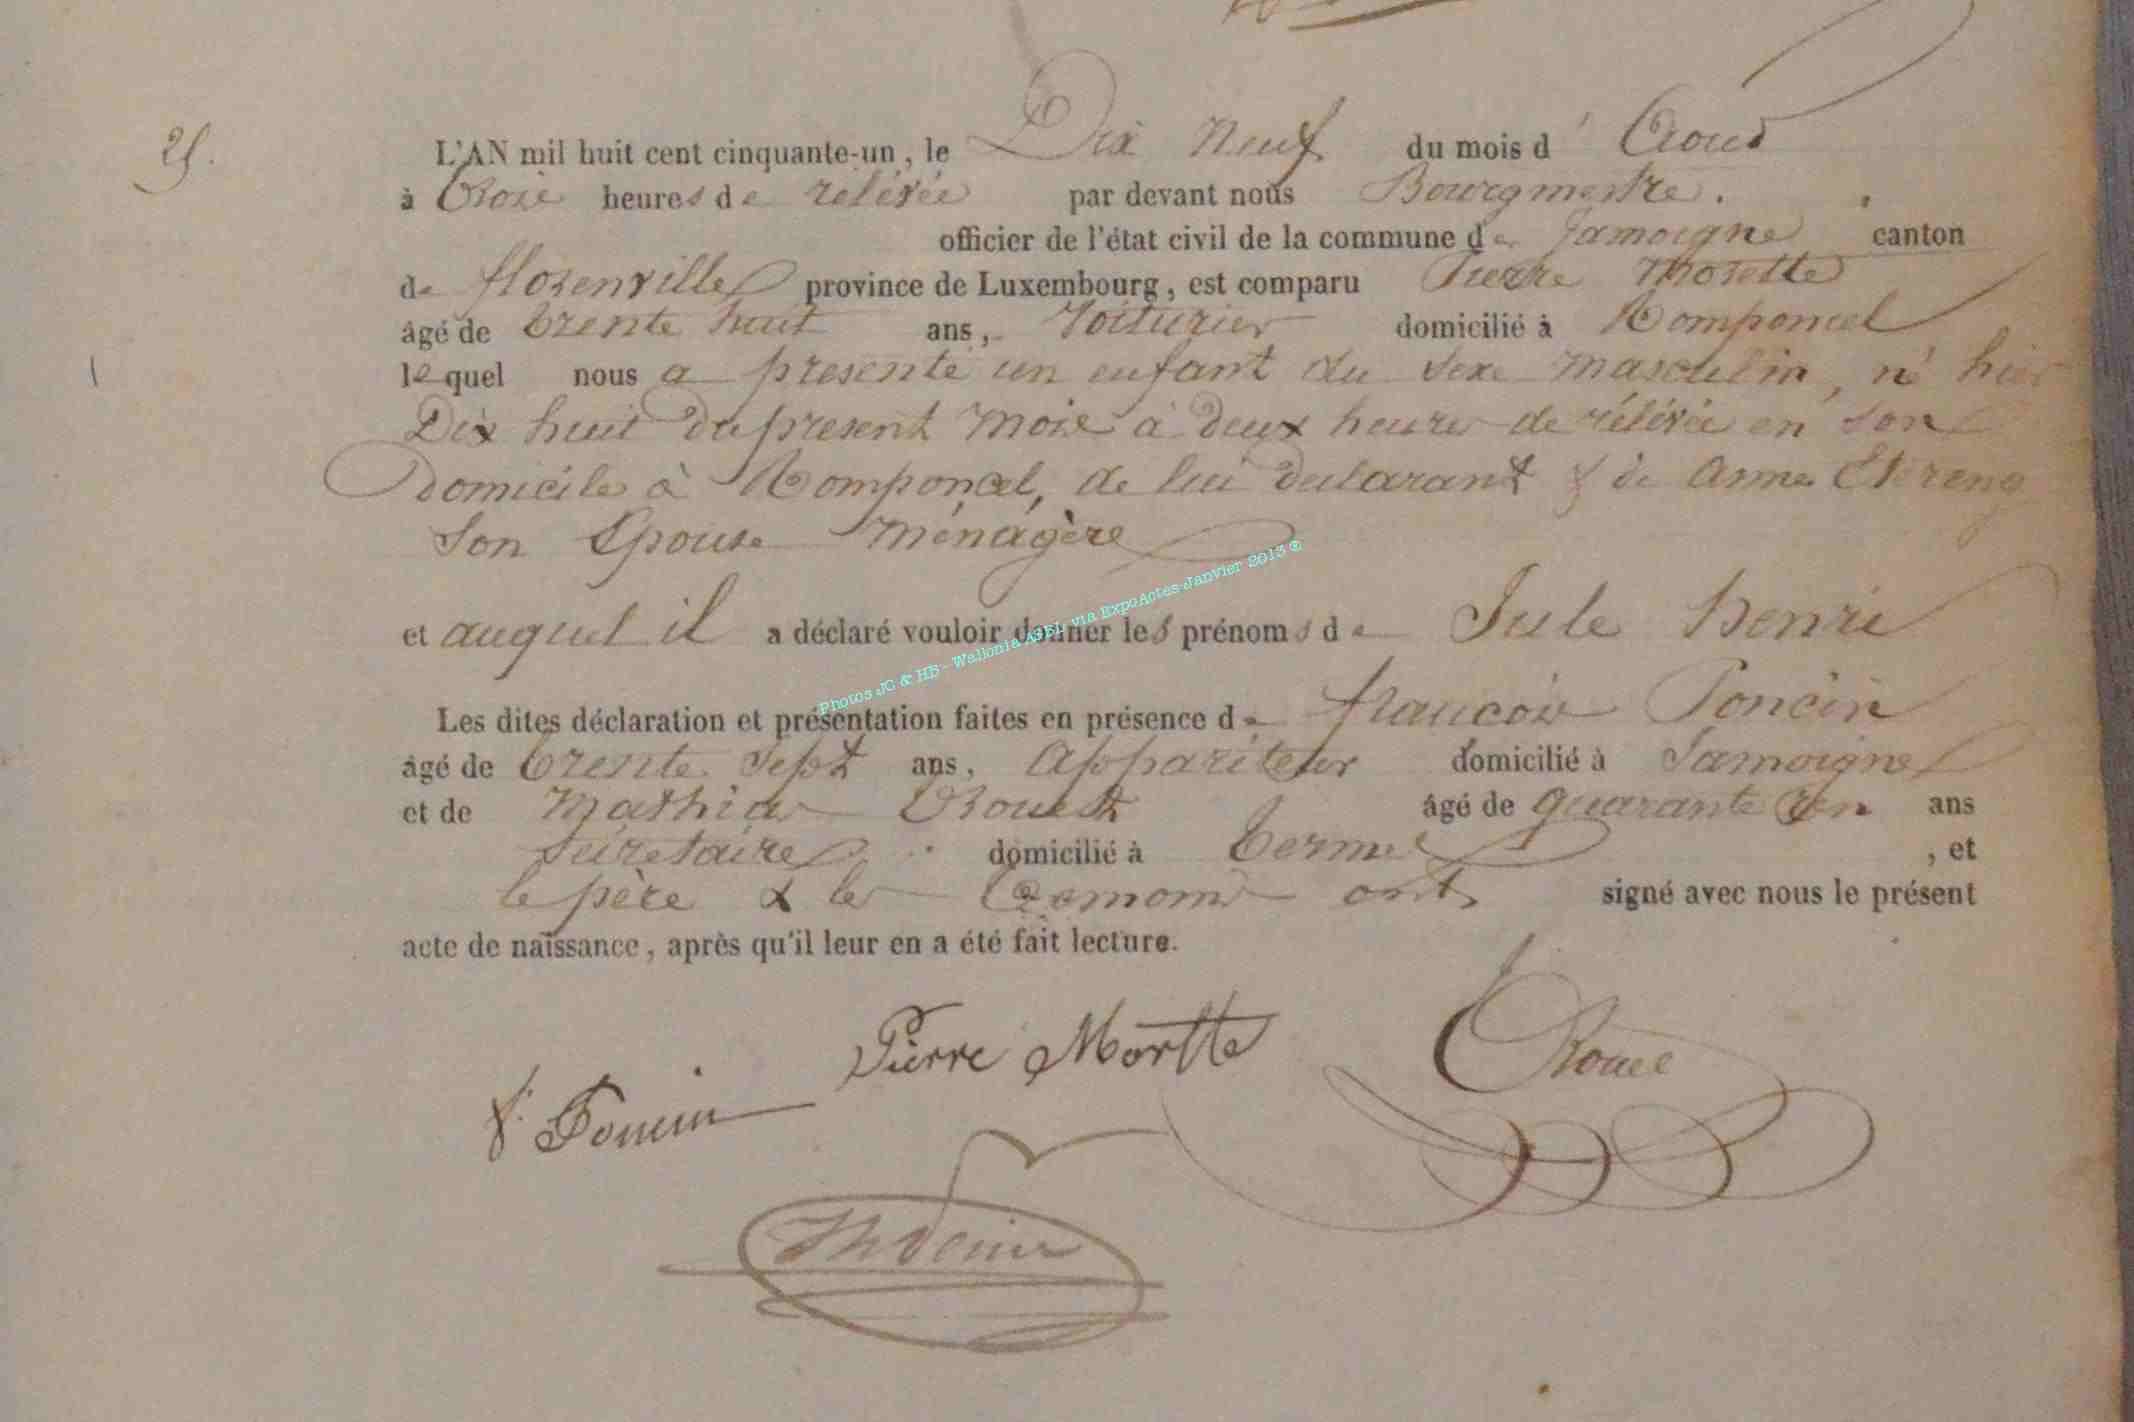 25.
L'AN mil huit cent cinquante-un, le Dix Neuf du mois d' Aout
à trois heures de relévée par devant nous Bourgmestre.
officier de l'état civil de la commune de Jamoigne canton
de florenville province de Luxembourg, est comparu Pierre Morette
âgé de trente huit ans, Voiturier domicilié à Romponcel
lequel nous a presenté un enfant du sexe masculin, né hier
Dix huit du present mois à deux heures de rélévée en son
domicile à Romponcel, de lui declarant & de Anne Etereng
son Epouse Ménágère
et auquel il a déclaré vouloir donner les prénoms de Jule henri
Les dites déclaration et présentation faites en présence de francois Poncin
âgé de trente sept ans, Appariteur domicilié à Jamoigne
et de Mathias âgé de quarante un ans
secretaire domicilié à termes, et
le père & les temoins ont signé avec nous le présent
acte de naissance, après qu'il leur en a été fait lecture.
Pierre Mortte
f. Poncin
Photos JG & HB - Wallonia ASBL via ExpoActes-Janvier 2013 ©